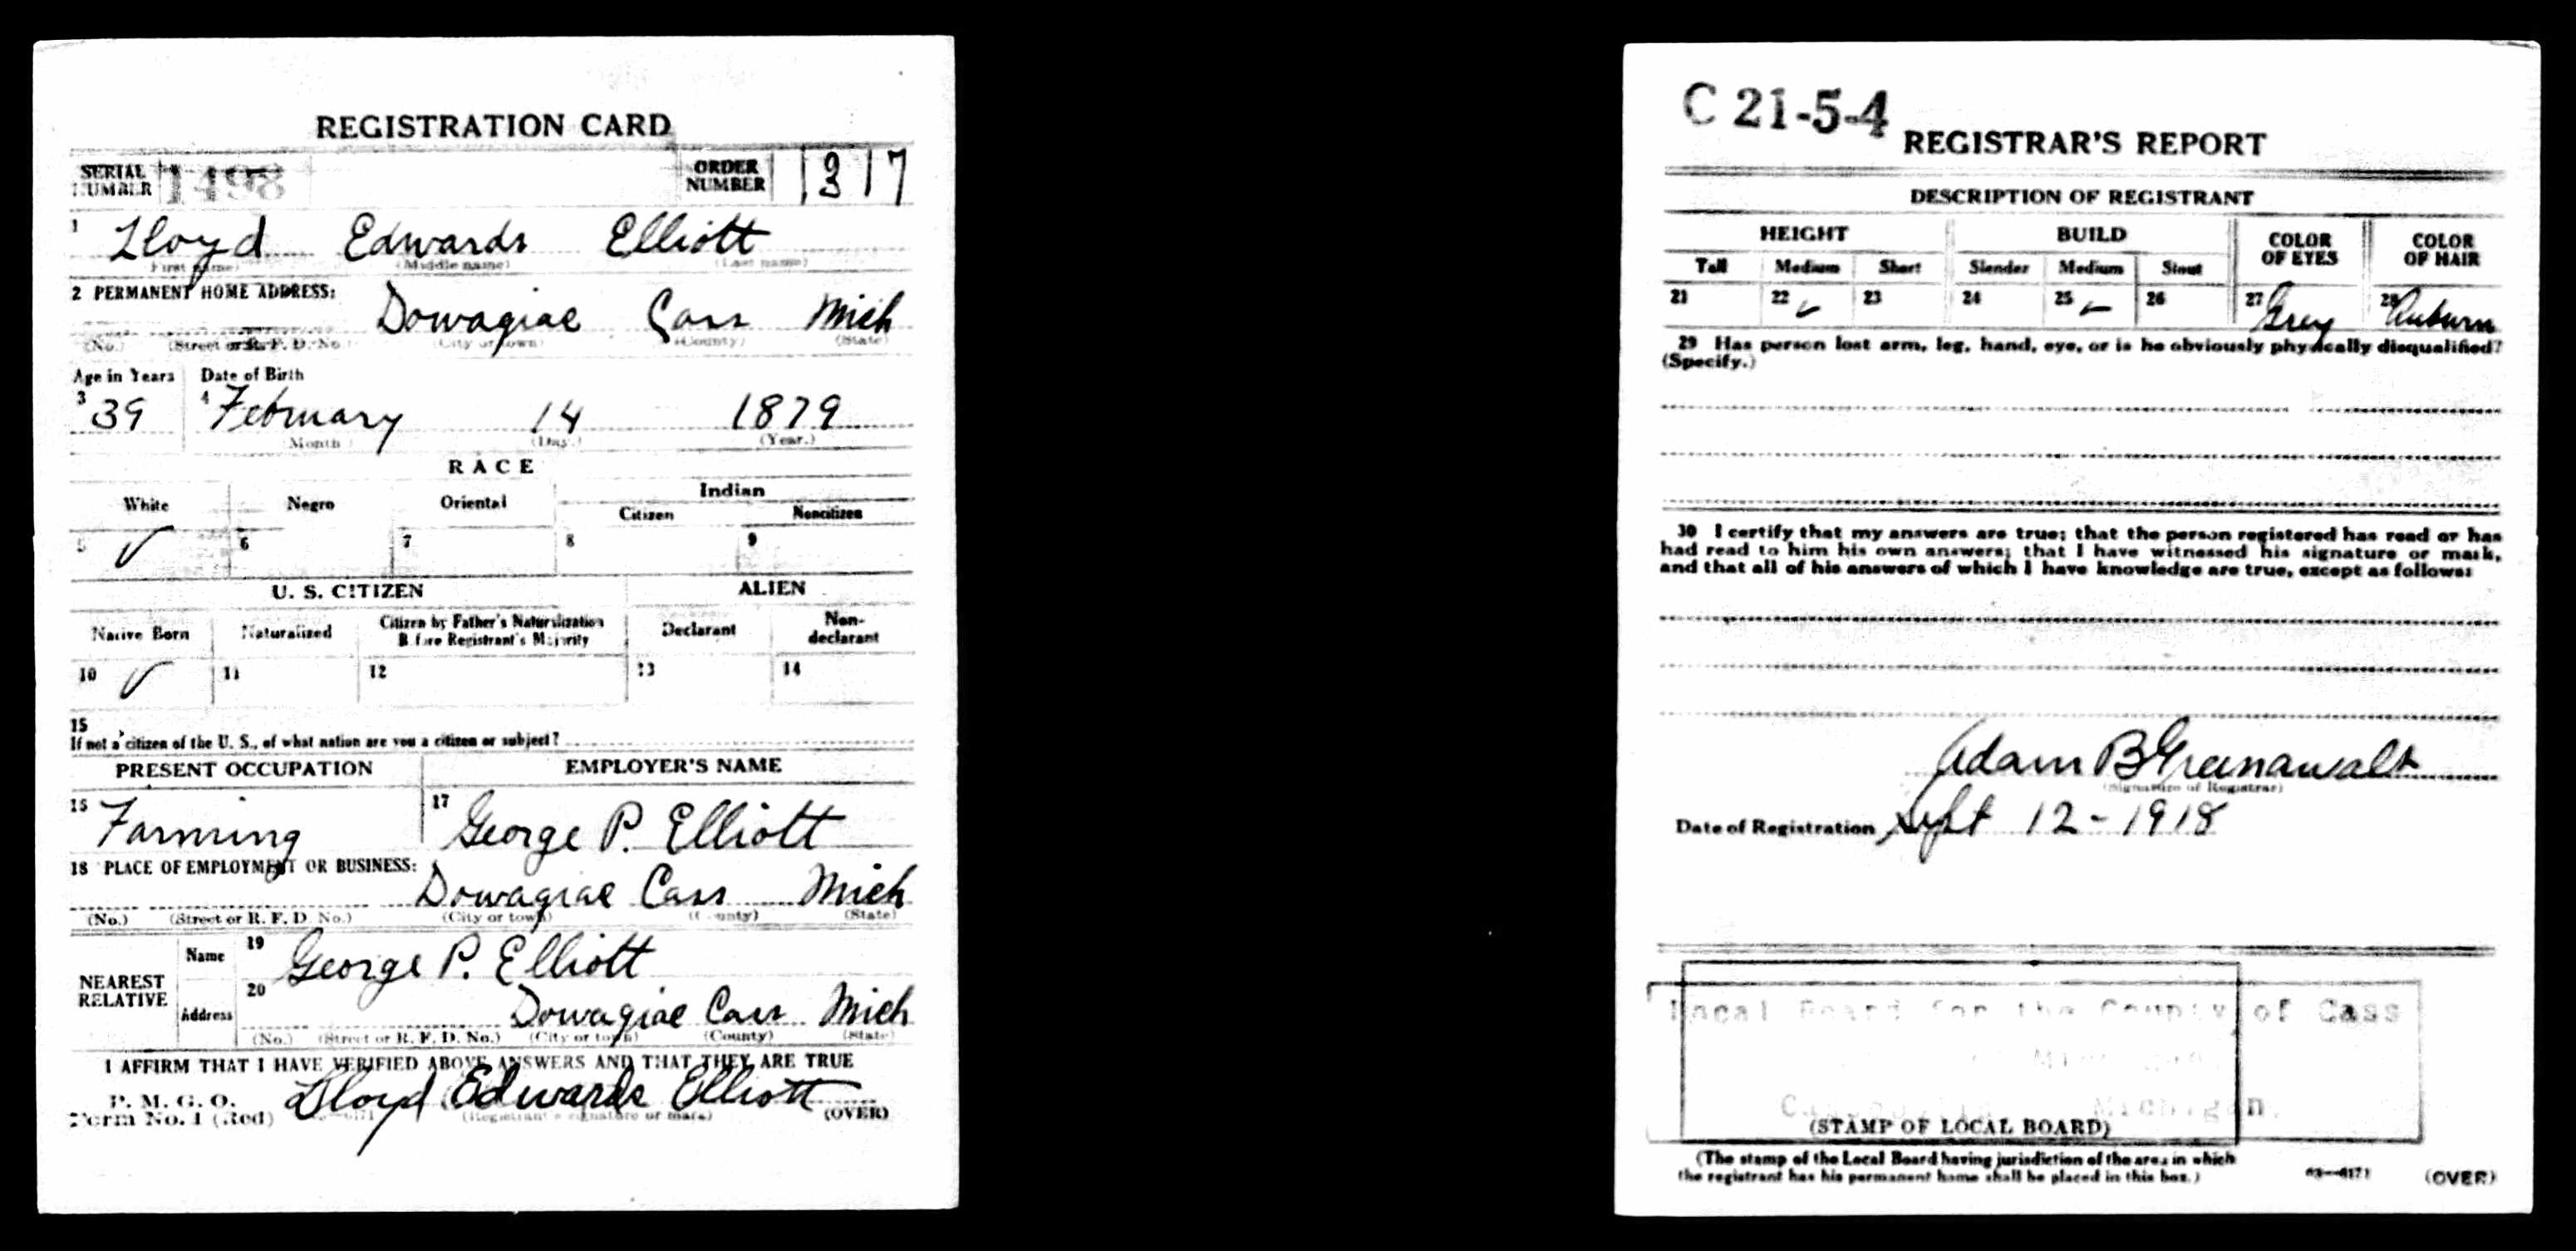 REGISTRATION CARD
SERIAL NUMBER 1498 ORDER NUMBER 1317
1 Lloyd Edwards Elliott
(First name) (Middle name) (Last name)
2 PERMANENT HOME ADDRESS:
Dowagiac Cass Mich
(No.) (Street or R. F. D. No.) (City or town) (County) (State)
Age in Years Date of Birth
3 39 4 February 14 1879
(Month) (Day.) (Year.)
RACE
White Negro Oriental Indian
Citizen Noncitizen
5 ✓ 6 7 8 9
U. S. CITIZEN ALIEN
Native Born Naturalized Citizen by Father's Naturalization Before Registrant's Majority Declarant Non-declarant
10 ✓ 11 12 13 14
15
If not a citizen of the U. S., of what nation are you a citizen or subject?
PRESENT OCCUPATION EMPLOYER'S NAME
16 Farming 17 George P. Elliott
18 PLACE OF EMPLOYMENT OR BUSINESS:
Dowagiac Cass Mich
(No.) (Street or R. F. D. No.) (City or town) (County) (State)
NEAREST RELATIVE
Name 19 George P. Elliott
Address 20 Dowagiac Cass Mich
(No.) (Street or R. F. D. No.) (City or town) (County) (State)
I AFFIRM THAT I HAVE VERIFIED ABOVE ANSWERS AND THAT THEY ARE TRUE
P. M. G. O.
Form No. 1 (Red) Lloyd Edwards Elliott (OVER)
(Registrant's signature or mark)
C 21-5-4
REGISTRAR'S REPORT
DESCRIPTION OF REGISTRANT
HEIGHT BUILD COLOR OF EYES COLOR OF HAIR
Tall Medium Short Slender Medium Stout
21 22 ✓ 23 24 25 ✓ 26 27 Grey 28 Auburn
29 Has person lost arm, leg, hand, eye, or is he obviously physically disqualified?
(Specify.)
30 I certify that my answers are true; that the person registered has read or has
had read to him his own answers; that I have witnessed his signature or mark,
and that all of his answers of which I have knowledge are true, except as follows:
Adam B Greenawalt
(Signature of Registrar)
Date of Registration Sept 12 - 1918
Local Board for the County of Cass
Michigan.
(STAMP OF LOCAL BOARD)
(The stamp of the Local Board having jurisdiction of the area in which
the registrant has his permanent home shall be placed in this box.)
03—6171 (OVER)